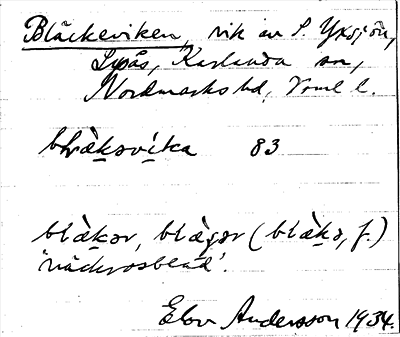 Bläckeviken, vik av S. Yxsjön,
Lysås, Karlanda sn,
Nordmarks hd, Vrml l.
blæ̀kəvíka 83
blæ̀kər, blæ̀gər (blæ̀kə, f.)
'näckrosblad'.
Elov Andersson 1934.